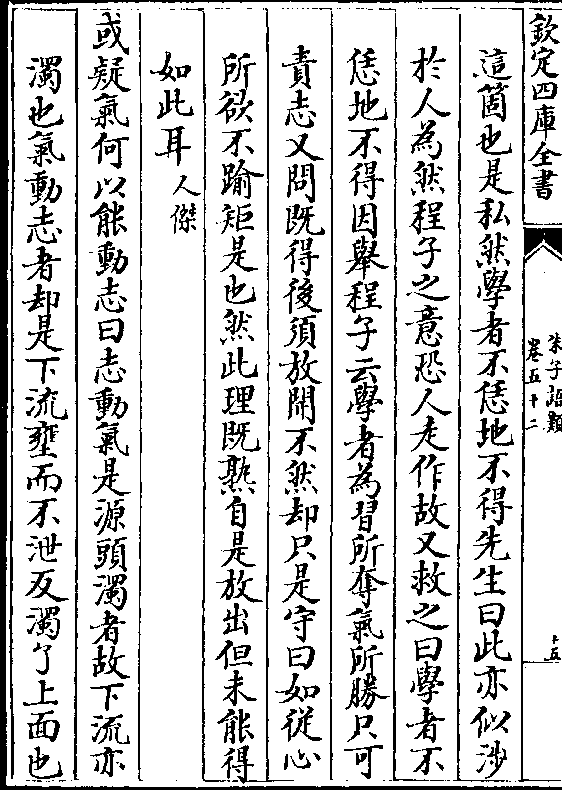 欽定四庫全書
朱子語類
卷五十二
十五
這箇也是私然學者不恁地不得先生曰此亦似涉
於人為然程子之意恐人走作故又救之曰學者不
恁地不得因舉程子云學者為習所奪氣所勝只可
責志又問既得後須放開不然却只是守曰如從心
所欲不踰矩是也然此理既熟自是放出但未能得
如此耳人傑
或疑氣何以能動志曰志動氣是源頭濁者故下流亦
濁也氣動志者却是下流壅而不泄反濁了上面也